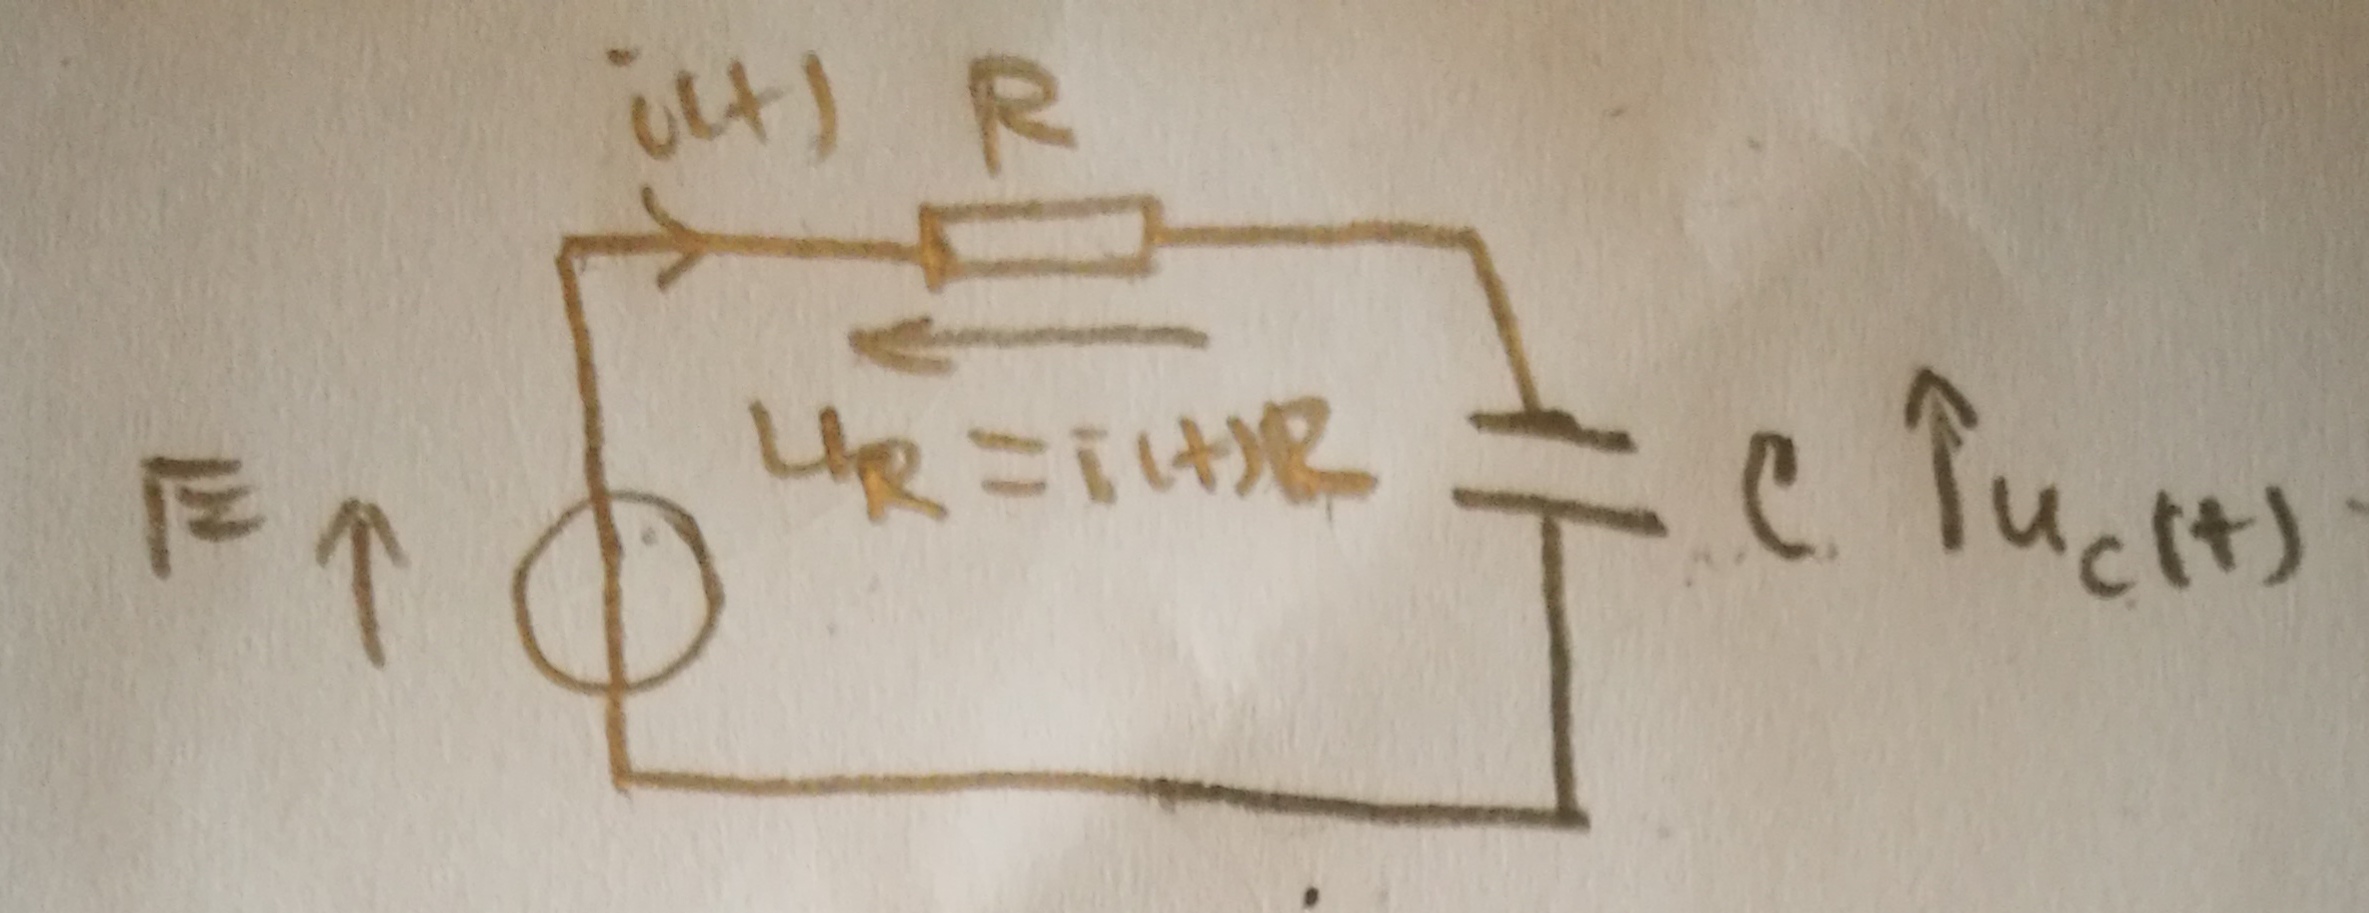 i(t) R
E
U_R = i(t)R
C u_c(t)